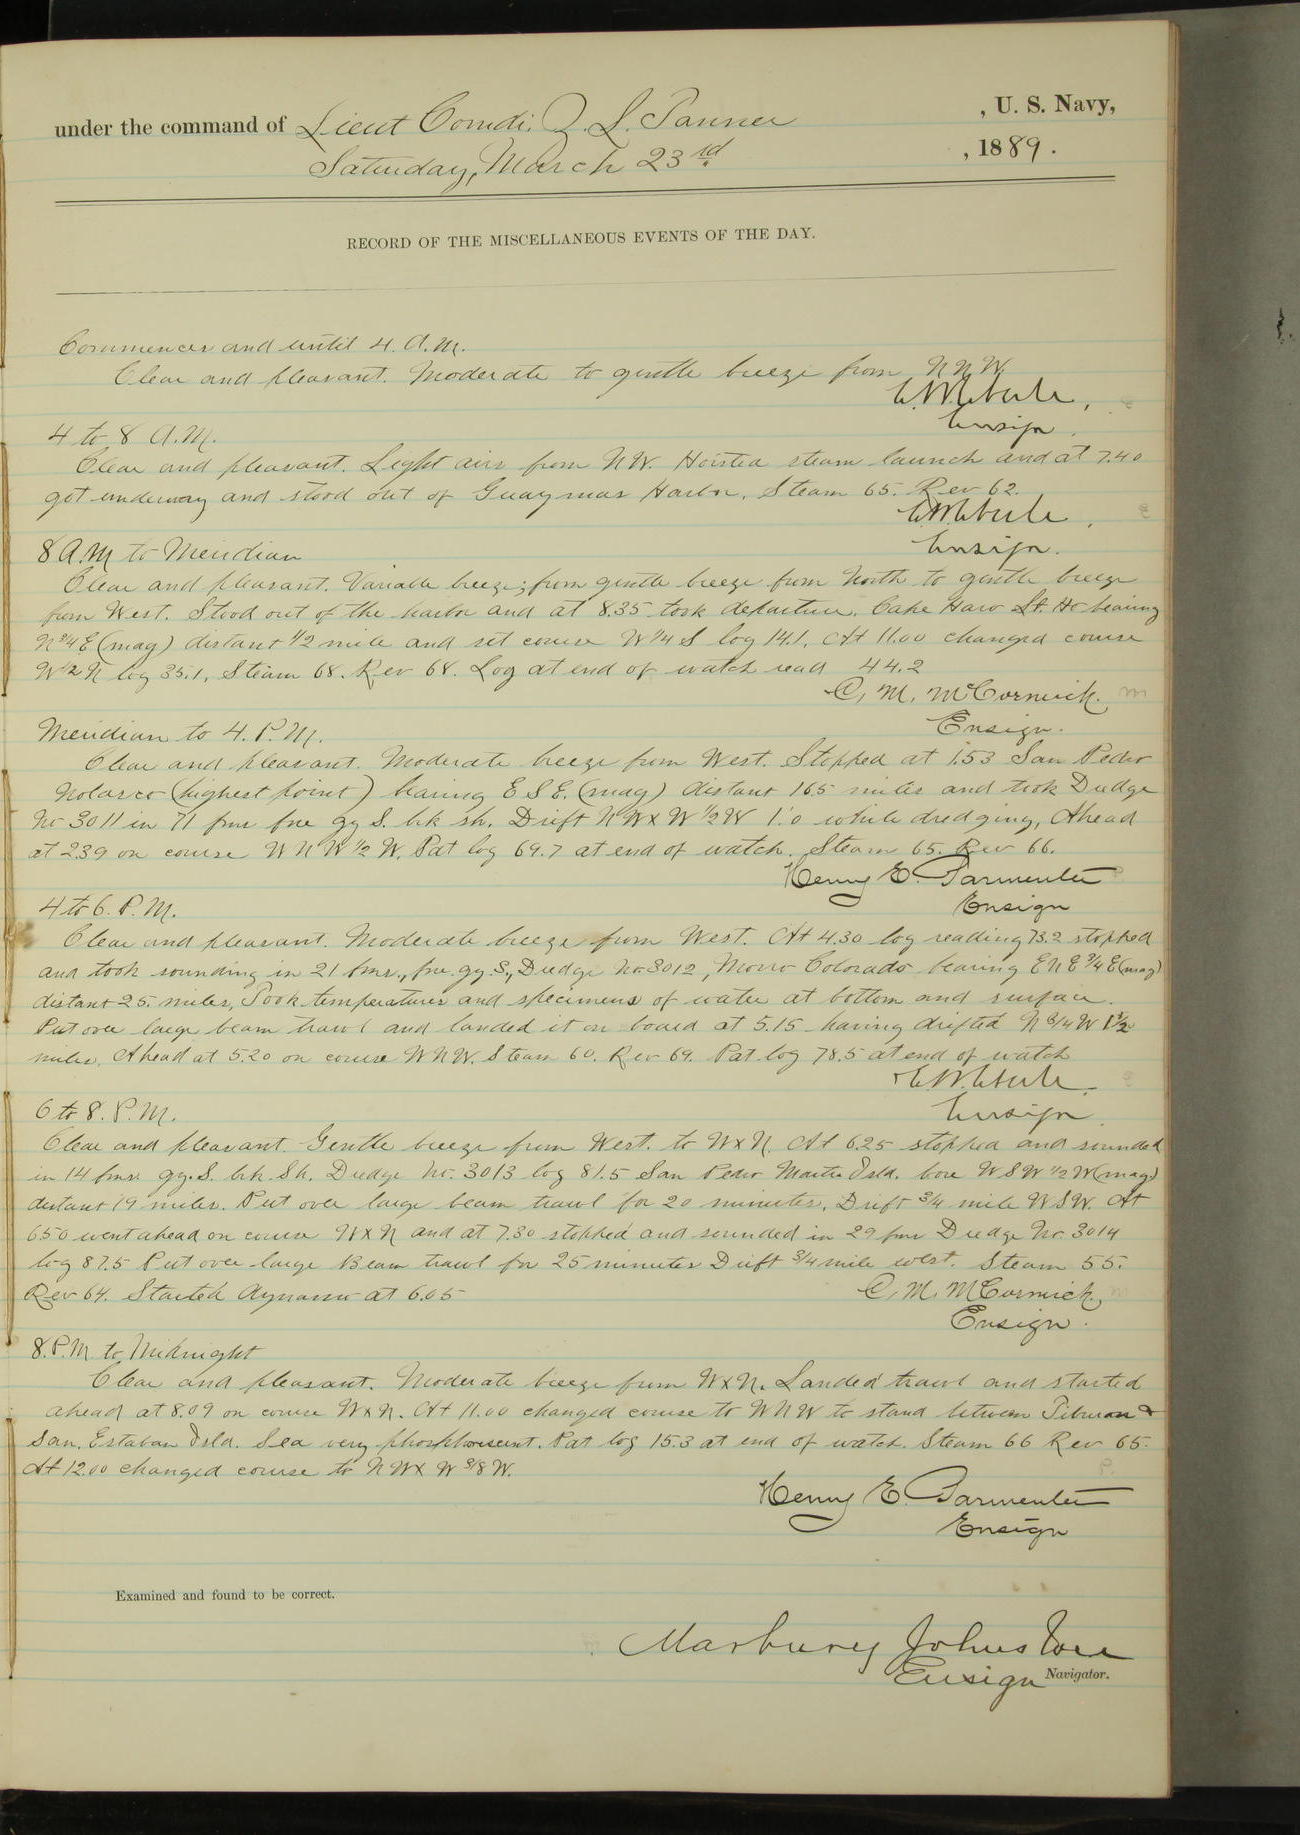 under the command of Lieut Comdr. Z. L. Tanner , U. S. Navy,
Saturday, March 23rd , 1889.
RECORD OF THE MISCELLANEOUS EVENTS OF THE DAY.
Commences and until 4. A.M.
Clear and pleasant. Moderate to gentle breeze from NNW.
E.W.Eberle,
Ensign.
4 to 8 A.M.
Clear and pleasant. Light airs from NW. Hoisted steam launch and at 7.40
got underway and stood out of Guaymas Harbor. Steam 65. Rev 62.
E.W.Eberle,
Ensign.
8 A.M to Meridian
Clear and pleasant. Variable breeze; from gentle breeze from North to gentle breeze
from West. Stood out of the harbor and at 8.35 took departure. Cape Haro Lt. Ho bearing
N 3/4 E (mag) distant 1/2 mile and set course W 1/4 S log 14.1. At 11.00 changed course
W 1/2 N log 35.1. Steam 68. Rev 68. Log at end of watch read 44.2
C. M. McCormick.
Ensign.
Meridian to 4. P.M.
Clear and pleasant. Moderate breeze from West. Stopped at 1.53 San Pedro
Nolasco (highest point) bearing E S E. (mag) distant 16.5 miles and took Dredge
No 3011 in 71 fms fne gy S. brk sh. Drift N W x W 1/2 W 1'.0 while dredging. Ahead
at 2.39 on course W N W 1/2 W. Pat log 69.7 at end of watch. Steam 65. Rev 66.
Henry E. Parmenter
Ensign
4 to 6. P.M.
Clear and pleasant. Moderate breeze from West. At 4.30 log reading 73.2 stopped
and took sounding in 21 fms., fne. gy. S., Dredge No 3012, Morro Colorado bearing E N E 3/4 E (mag)
distant 25 miles, Took temperatures and specimens of water at bottom and surface.
Put over large beam trawl and landed it on board at 5.15 having drifted N 3/4 W 1 1/2
miles. Ahead at 5.20 on course W N W. Steam 60. Rev 69. Pat log 78.5 at end of watch
E.W.Eberle.
Ensign.
6 to 8. P.M.
Clear and pleasant. Gentle breeze from West. to W x N. At 6.25 stopped and sounded
in 14 fms. gy. S. brk. Sh. Dredge No. 3013 log 81.5 San Pedro Martir Isld. bore W S W 1/2 W (mag)
distant 19 miles. Put over large beam trawl for 20 minutes. Drift 3/4 mile W S W. At
6.50 went ahead on course W x N and at 7.30 stopped and sounded in 29 fms Dredge No. 3014
log 87.5 Put over large Beam trawl for 25 minutes Drift 3/4 mile west. Steam 55.
Rev 64. Started dynamo at 6.05
C. M. McCormick,
Ensign.
8. P.M. to Midnight
Clear and pleasant. Moderate breeze from W x N. Landed trawl and started
ahead at 8.09 on course W x N. At 11.00 changed course to W N W to stand between Tiburon &
San. Estaban Isld. Sea very phosphorescent. Pat log 15.3 at end of watch. Steam 66 Rev 65.
At 12.00 changed course to N W x W 3/8 W.
Henry E. Parmenter
Ensign
Examined and found to be correct.
Marbury Johnston
Ensign Navigator.